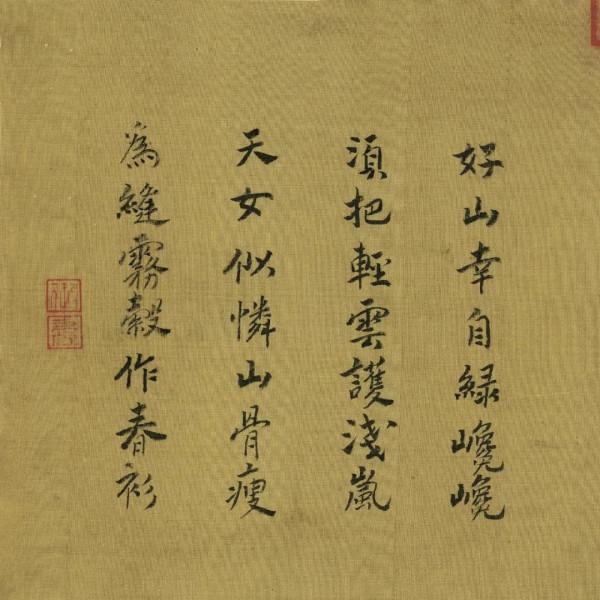 好山幸自綠巉巉
須把輕雲護淺嵐
天女似憐山骨瘦
為縫霧縠作春衫
御書